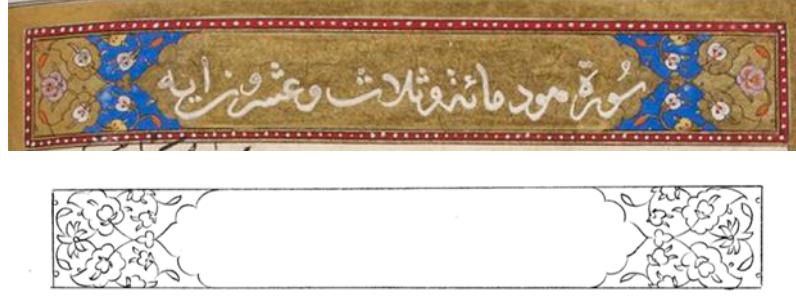 سُورة هود مائة وثلاث وعشرون آية